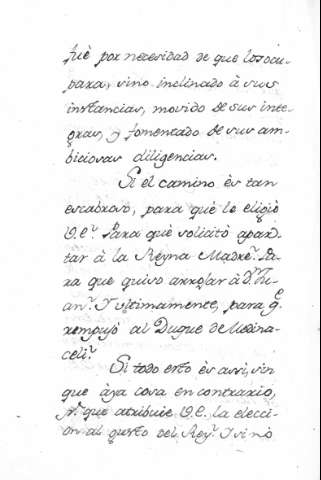 fuè por necesidad de que los ocu-
para, sino inclinado à sus
instancias, movido de sus inte-
reses, y fomentado de sus am-
biciosas diligencias.
Si el camino ès tan
escabroso, para què le eligiò
V.E.ª Para què solicitò apar-
tar à la Reyna Madre. Pa-
ra que quiso arrojar à D.
an.º Y últimamente, para q.
rempujò al Duque de Medina-
celi.
Si todo esto ès assi, sin
que àya cosa en contrario,
p.r què atribuie V.E. la elecci-
on al gusto del Rey. Y sinò